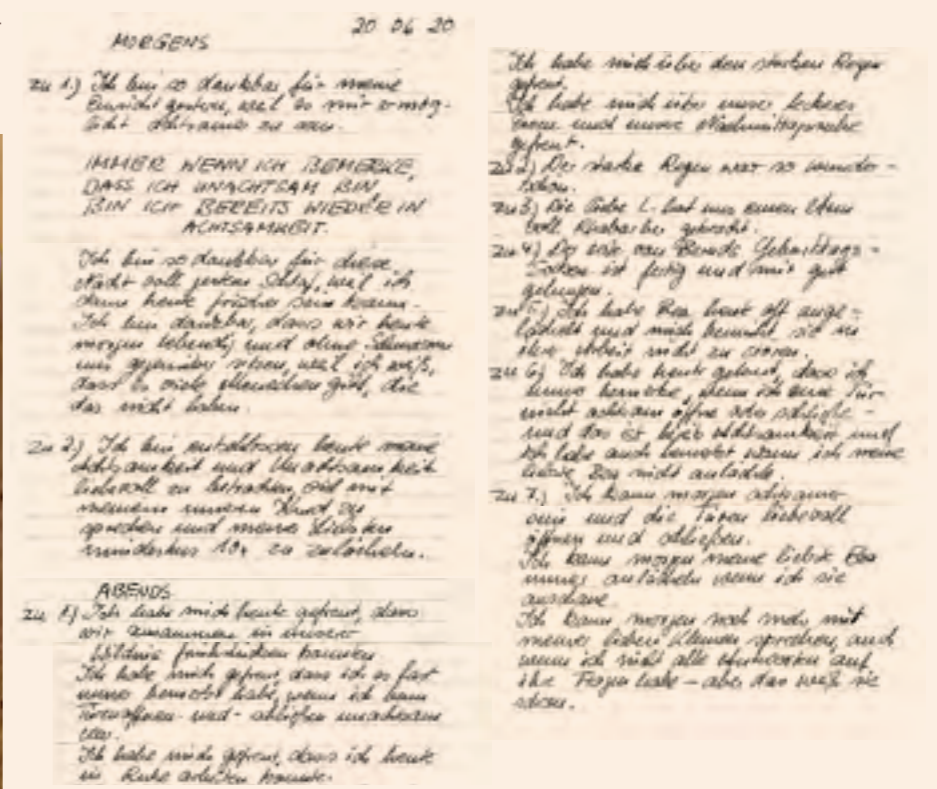 20 06 20
MORGENS
zu 1.) Ich bin so dankbar für meine
Einsicht gestern, weil es mir ermög-
licht achtsamer zu sein.
IMMER WENN ICH BEMERKE,
DASS ICH UNACHTSAM BIN,
BIN ICH BEREITS WIEDER IN
ACHTSAMKEIT.
Ich bin so dankbar für diese
Nacht voll gutem Schlaf, weil ich
dann heute frischer sein kann.
Ich bin dankbar, dass wir heute
morgen lebendig und ohne Schmerzen
uns gegenüber sitzen, weil ich weiß,
dass es viele Menschen gibt, die
das nicht haben.
zu 2.) Ich bin entschlossen heute meine
Achtsamkeit und Unachtsamkeit
liebevoll zu betrachten, viel mit
meinem inneren Kind zu
sprechen und meiner Liebsten
mindestens 10x zu zulächeln.
ABENDS
zu 1.) Ich habe mich heute gefreut, dass
wir zusammen in unserer
Wildnis frühstücken konnten.
Ich habe mich gefreut, dass ich es fast
immer bemerkt habe, wenn ich beim
Türenöffnen- und -schließen unachtsam
war.
Ich habe mich gefreut, dass ich heute
in Ruhe arbeiten konnte.
Ich habe mich über den starken Regen
gefreut.
Ich habe mich über unser leckeres
Essen und unsere
gefreut.
zu 2.) Der starke Regen war so wunder-
schön.
zu 3.) Die liebe L. hat uns einen
voll Rhabarber gebracht.
zu 4.) Der von Bernds Geburtstags-
ist fertig und mir gut
gelungen.
zu 5.) Ich habe heute oft ange-
lächelt und mich bemüht sie in
ihrer Arbeit nicht zu stören.
zu 6.) Ich habe heute gelernt, dass ich
immer bemerke, wenn ich eine Tür
nicht achtsam öffne oder schließe -
und das ist Achtsamkeit und
ich habe auch bemerkt wenn ich meine
nicht anlächle.
zu 7.) Ich kann morgen achtsamer
sein und die Türen liebevoll
öffnen und schließen.
Ich kann morgen meine liebste
immer anlächeln wenn ich sie
anschaue.
Ich kann morgen noch mehr mit
meiner lieben Kleinen sprechen, auch
wenn ich nicht alle Antworten auf
ihre Fragen habe - aber das weiß sie
schon.